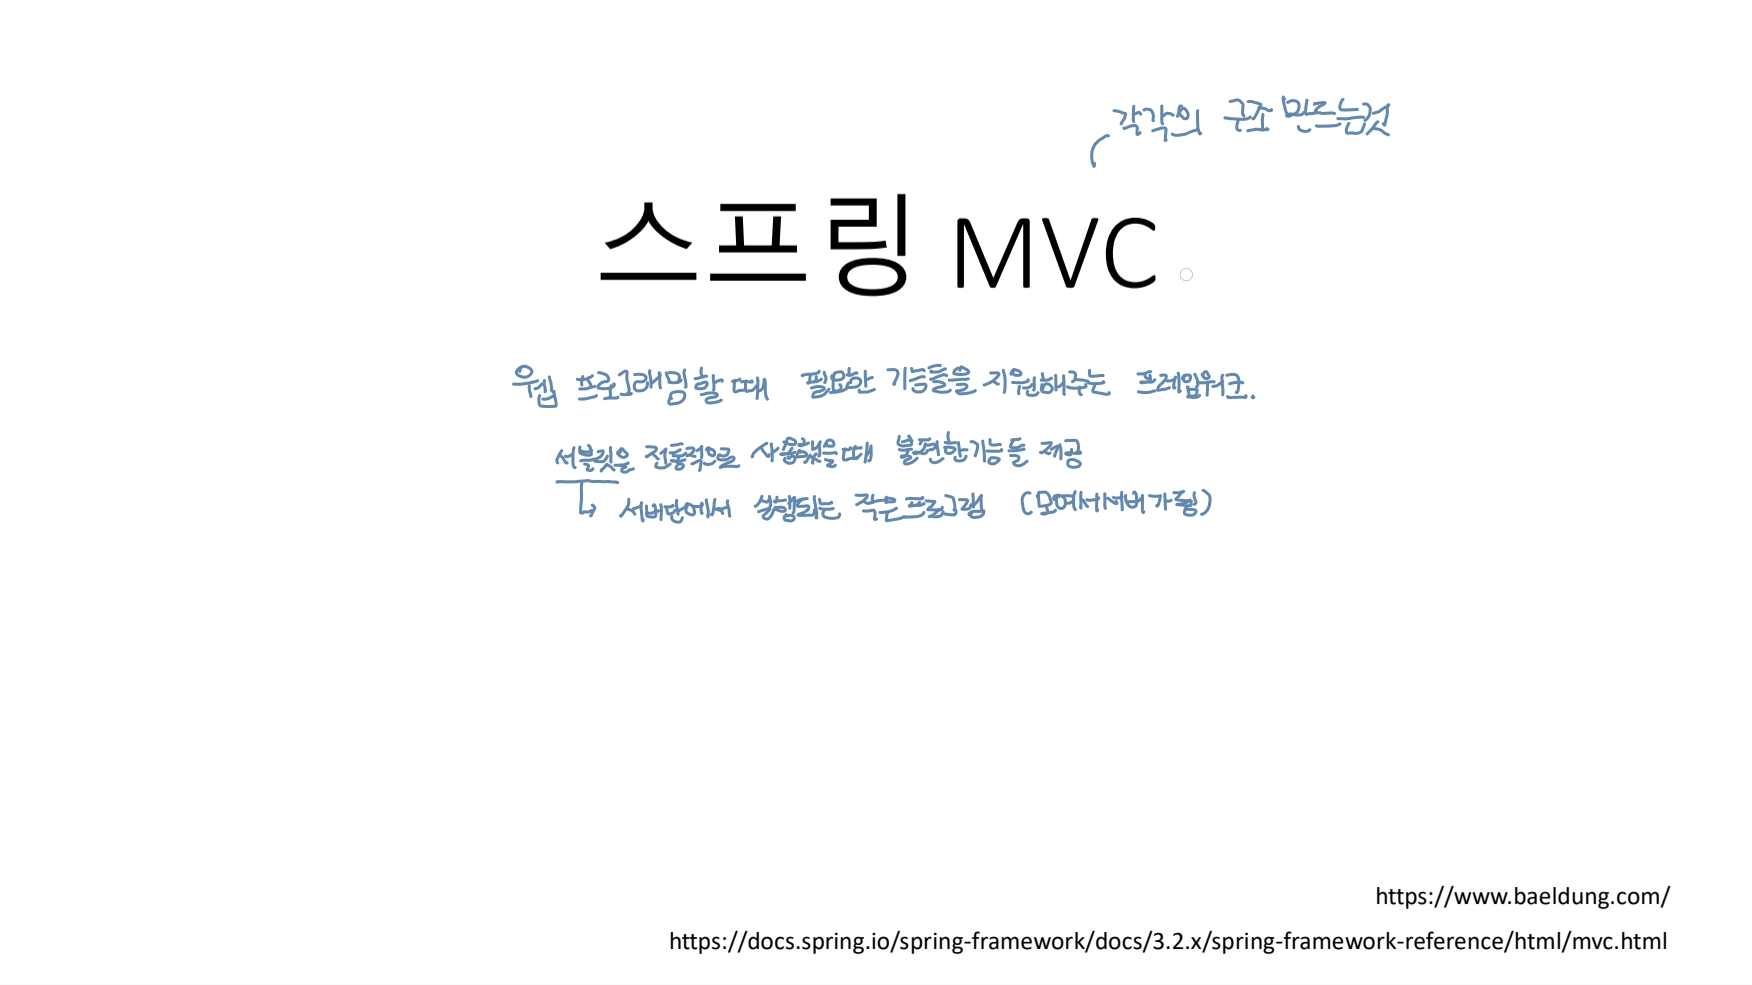 각각의 구조 만드는것
스프링 MVC
웹 프로그래밍할 때 필요한 기능들을 지원해주는 프레임워크.
서블릿을 전통적으로 사용했을때 불편한기능들 제공
↳ 서버단에서 실행되는 작은프로그램 (모여서서버가됨)
https://www.baeldung.com/
https://docs.spring.io/spring-framework/docs/3.2.x/spring-framework-reference/html/mvc.html